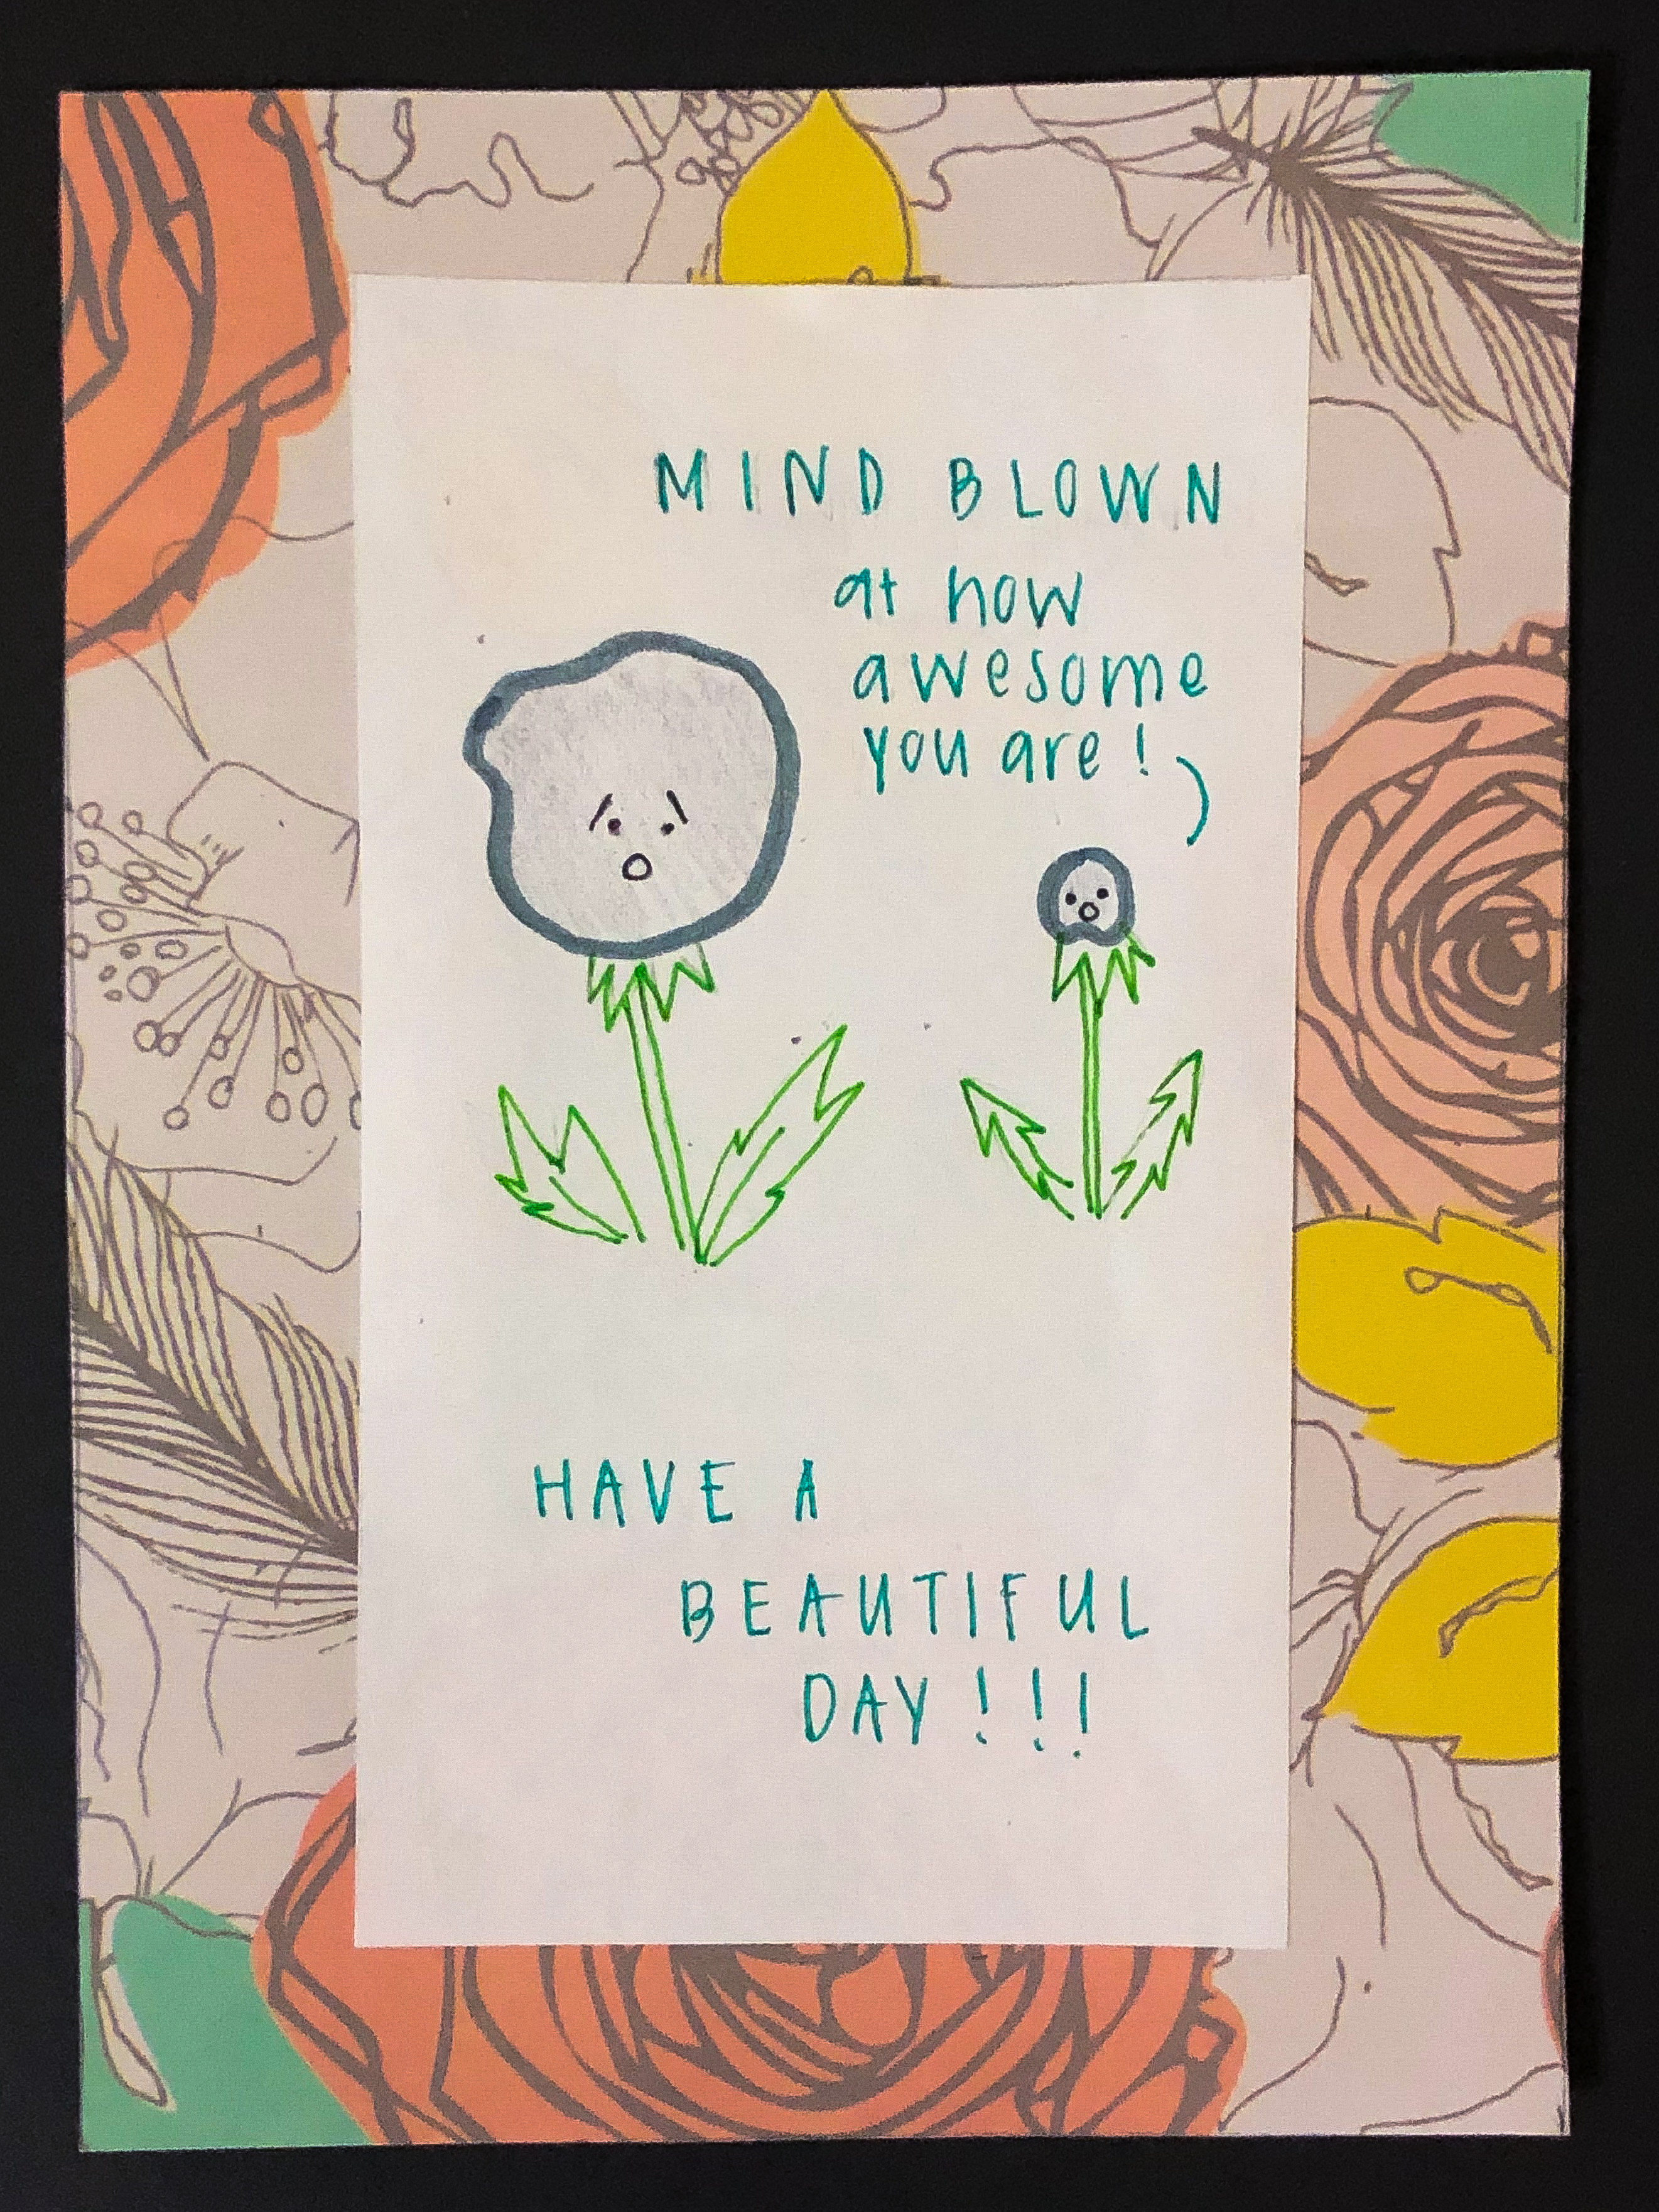 MIND BLOWN
at how
awesome
you are!
HAVE A
BEAUTIFUL
DAY!!!